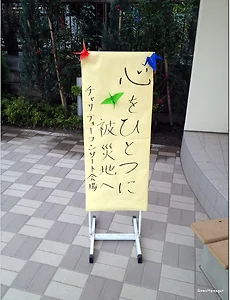 心をひとつに
被災地へ
チャリティーコンサート会場